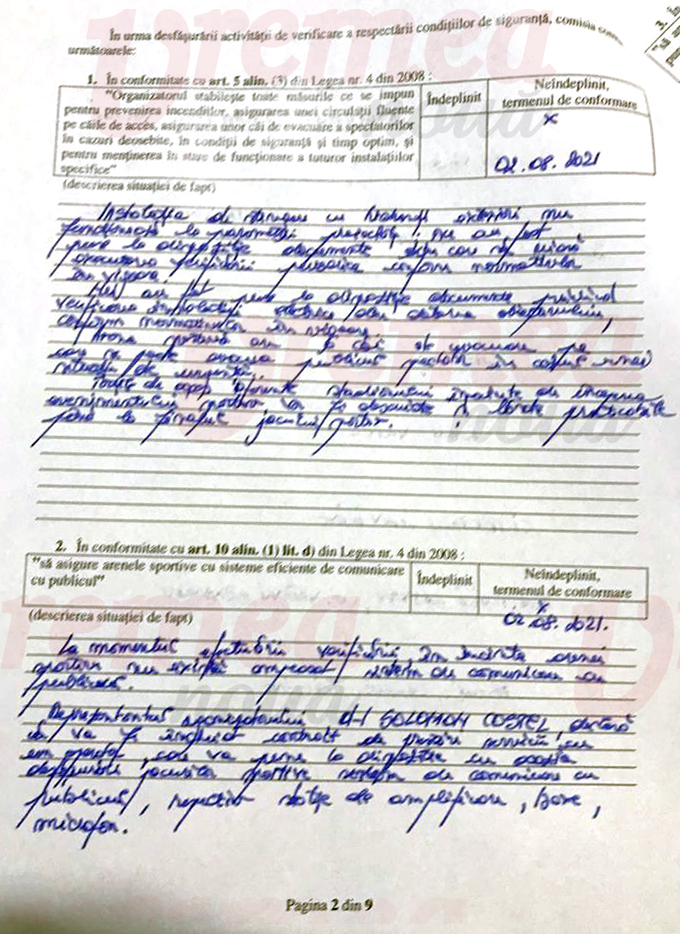 În urma desfășurării activității de verificare a respectării condițiilor de siguranță, comisia
următoarele:
1. În conformitate cu art. 5 alin. (3) din Legea nr. 4 din 2008 :
"Organizatorul stabilește toate măsurile ce se impun
pentru prevenirea incendiilor, asigurarea unei circulații fluente
pe căile de acces, asigurarea unor căi de evacuare a spectatorilor
în cazuri deosebite, în condiții de siguranță și timp optim, și
pentru menținerea în stare de funcționare a tuturor instalațiilor
specifice"
Îndeplinit
Neîndeplinit,
termenul de conformare
x
02.08.2021
(descrierea situației de fapt)
Instalația de stingere cu hidranți exteriori nu
funcționează la parametrii proiectați. Nu au fost
puse la dispoziție documente din care să
efectuarea verificării periodice conform normativelor
în vigoare.
Nu au fost puse la dispoziție documente privind
verificarea instalației electrice
conform normativelor în vigoare.
Arena sportivă are căi de evacuare pe
care se poate evacua publicul în cazul unei
situații de urgență.
Toate de stadionului înainte de începerea
evenimentului sportiv vor fi deschise și libere
până la finalul jocului sportiv.
2. În conformitate cu art. 10 alin. (1) lit. d) din Legea nr. 4 din 2008 :
"să asigure arenele sportive cu sisteme eficiente de comunicare
cu publicul"
Îndeplinit
Neîndeplinit,
termenul de conformare
x
02.08.2021.
(descrierea situației de fapt)
La momentul efectuării verificării, în incinta arenei
sportive nu există amplasat sistem de comunicare cu
publicul.
Reprezentantul organizatorului d-l SOLOMON COSTEL, declară
că va fi încheiat contract de prestări servicii cu
un operator, care va pune la dispoziție cu ocazia
desfășurării jocurilor sportive sistem de comunicare cu
publicul, respectiv stație de amplificare, boxe,
microfon.
Pagina 2 din 9
Vremea
nouă